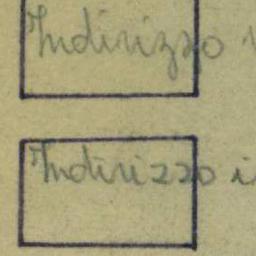 Indirizzo
Indirizzo i